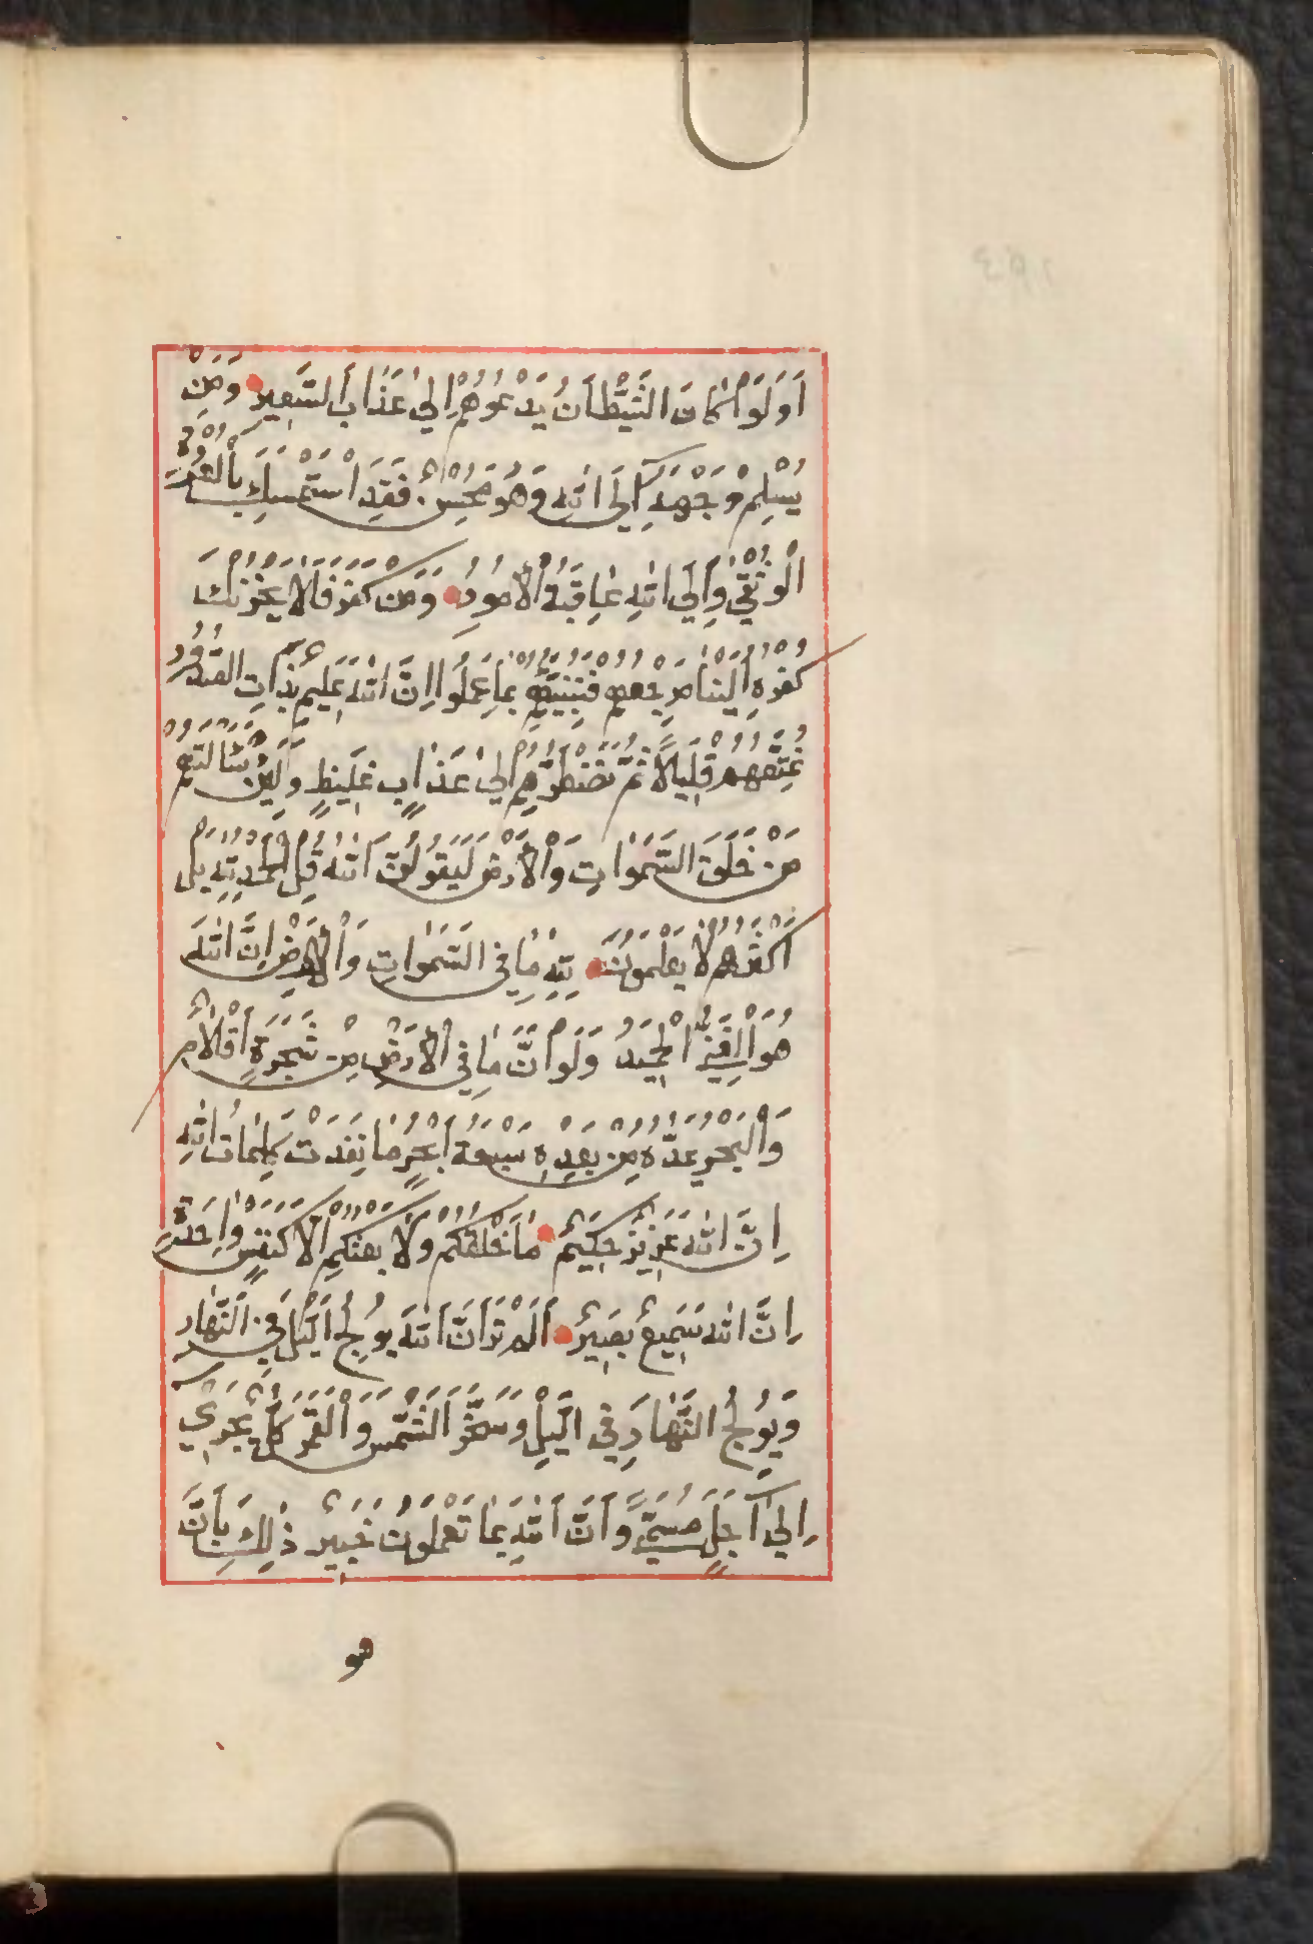 اَوَلَوْ كَانَ الشَّيْطَانُ يَدْعُوهُمْ اِلٰى عَذَابِ السَّعِيرِ وَمَنْ
يُسْلِمْ وَجْهَهُ اِلَى اللهِ وَهُوَ مُحْسِنٌ فَقَدِ اسْتَمْسَكَ بِالْعُرْوَةِ
الْوُثْقٰى وَاِلَى اللهِ عَاقِبَةُ الْأُمُورِ وَمَنْ كَفَرَ فَلَا يَحْزُنْكَ
كُفْرُهُ اِلَيْنَا مَرْجِعُهُمْ فَنُنَبِّئُهُمْ بِمَا عَمِلُوا اِنَّ اللهَ عَلِيمٌ بِذَاتِ الصُّدُورِ
نُمَتِّعُهُمْ قَلِيلًا ثُمَّ نَضْطَرُّهُمْ اِلٰى عَذَابٍ غَلِيظٍ وَلَئِنْ سَأَلْتَهُمْ
مَنْ خَلَقَ السَّمٰوَاتِ وَالْأَرْضَ لَيَقُولُنَّ اللهُ قُلِ الْحَمْدُ لِلهِ بَلْ
اَكْثَرُهُمْ لَا يَعْلَمُونَ لِلهِ مَا فِى السَّمٰوَاتِ وَالْأَرْضِ اِنَّ اللهَ
هُوَ الْغَنِيُّ الْحَمِيدُ وَلَوْ اَنَّ مَا فِى الْأَرْضِ مِنْ شَجَرَةٍ اَقْلَامٌ
وَالْبَحْرُ يَمُدُّهُ مِنْ بَعْدِهِ سَبْعَةُ اَبْحُرٍ مَا نَفِدَتْ كَلِمَاتُ اللهِ
اِنَّ اللهَ عَزِيزٌ حَكِيمٌ مَا خَلْقُكُمْ وَلَا بَعْثُكُمْ اِلَّا كَنَفْسٍ وَاحِدَةٍ
اِنَّ اللهَ سَمِيعٌ بَصِيرٌ اَلَمْ تَرَ اَنَّ اللهَ يُولِجُ الَّيْلَ فِى النَّهَارِ
وَيُولِجُ النَّهَارَ فِى الَّيْلِ وَسَخَّرَ الشَّمْسَ وَالْقَمَرَ كُلٌّ يَجْرِي
اِلٰى اَجَلٍ مُسَمًّى وَاَنَّ اللهَ بِمَا تَعْمَلُونَ خَبِيرٌ ذٰلِكَ بِاَنَّ
هو